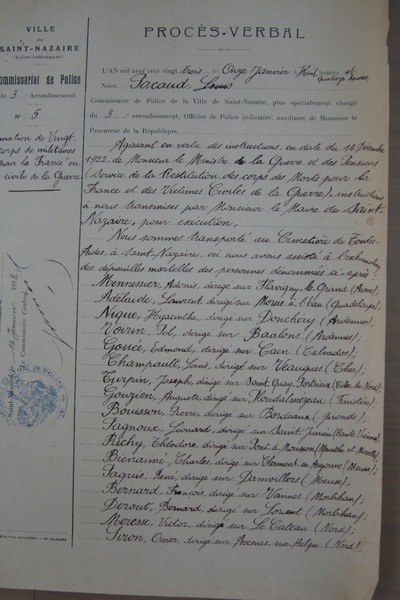 VILLE
DE
SAINT-NAZAIRE
(Loire-Inférieure)
Commissariat de Police
du 3e Arrondissement
N° 5
mation de Vingt
corps de militaires
de la Guerre
PROCÈS-VERBAL
L'AN mil neuf cent vingt trois le Onze Janvier à Huit heures et
Quatorze heures
NOUS, Pacaud, Louis
Commissaire de Police de la Ville de Saint-Nazaire, plus spécialement chargé
du 3e arrondissement, Officier de Police judiciaire, auxiliaire de Monsieur le
Procureur de la République,
Agissant en vertu des instructions, en date du 18 Décembre
1922, de Monsieur le Ministre de la Guerre et des Pensions
(Service de la Restitution des corps des Morts pour la
France et des Victimes Civiles de la Guerre), instructions
à nous transmises par Monsieur le Maire de Saint-
Nazaire, pour exécution,
Nous sommes transporté au Cimetière de Toutes-
Aides, à Saint-Nazaire, où nous avons assisté à l'exhumation
des dépouilles mortelles des personnes dénommées ci-après:
Mennessier, Adonis, dirigé sur Flavigny-le-Grand (Aisne);
Adélaïde, Laurent, dirigé sur Morne à l'eau (Guadeloupe);
Nique, Hyacinthe, dirigé sur Donchery (Ardennes);
Voirin, Pol, dirigé sur Baalons (Ardennes);
Edmond, dirigé sur Caen (Calvados);
Champault, Louis, dirigé sur Veaugues (Cher);
Turpin, Joseph, dirigé sur Saint Quay Portrieux (Côtes du Nord);
Gouzien, Auguste, dirigé sur Ploudalmézeau (Finistère);
Bouisson, Pierre, dirigé sur Bordeaux (Gironde);
Pagnoux, Léonard, dirigé sur Saint Junien (Haute Vienne);
Richy, Théodore, dirigé sur Pont à Mousson (Meurthe et Moselle);
Bienaimé, Charles, dirigé sur Clermont en Argonne (Meuse);
Paquis, René, dirigé sur Damvillers (Meuse);
Bernard, François, dirigé sur Vannes (Morbihan);
Derout, Bernard, dirigé sur Lorient (Morbihan);
Meresse, Victor, dirigé sur Le Cateau (Nord);
Siron, Omer, dirigé sur Avesnes sur Helpe (Nord);